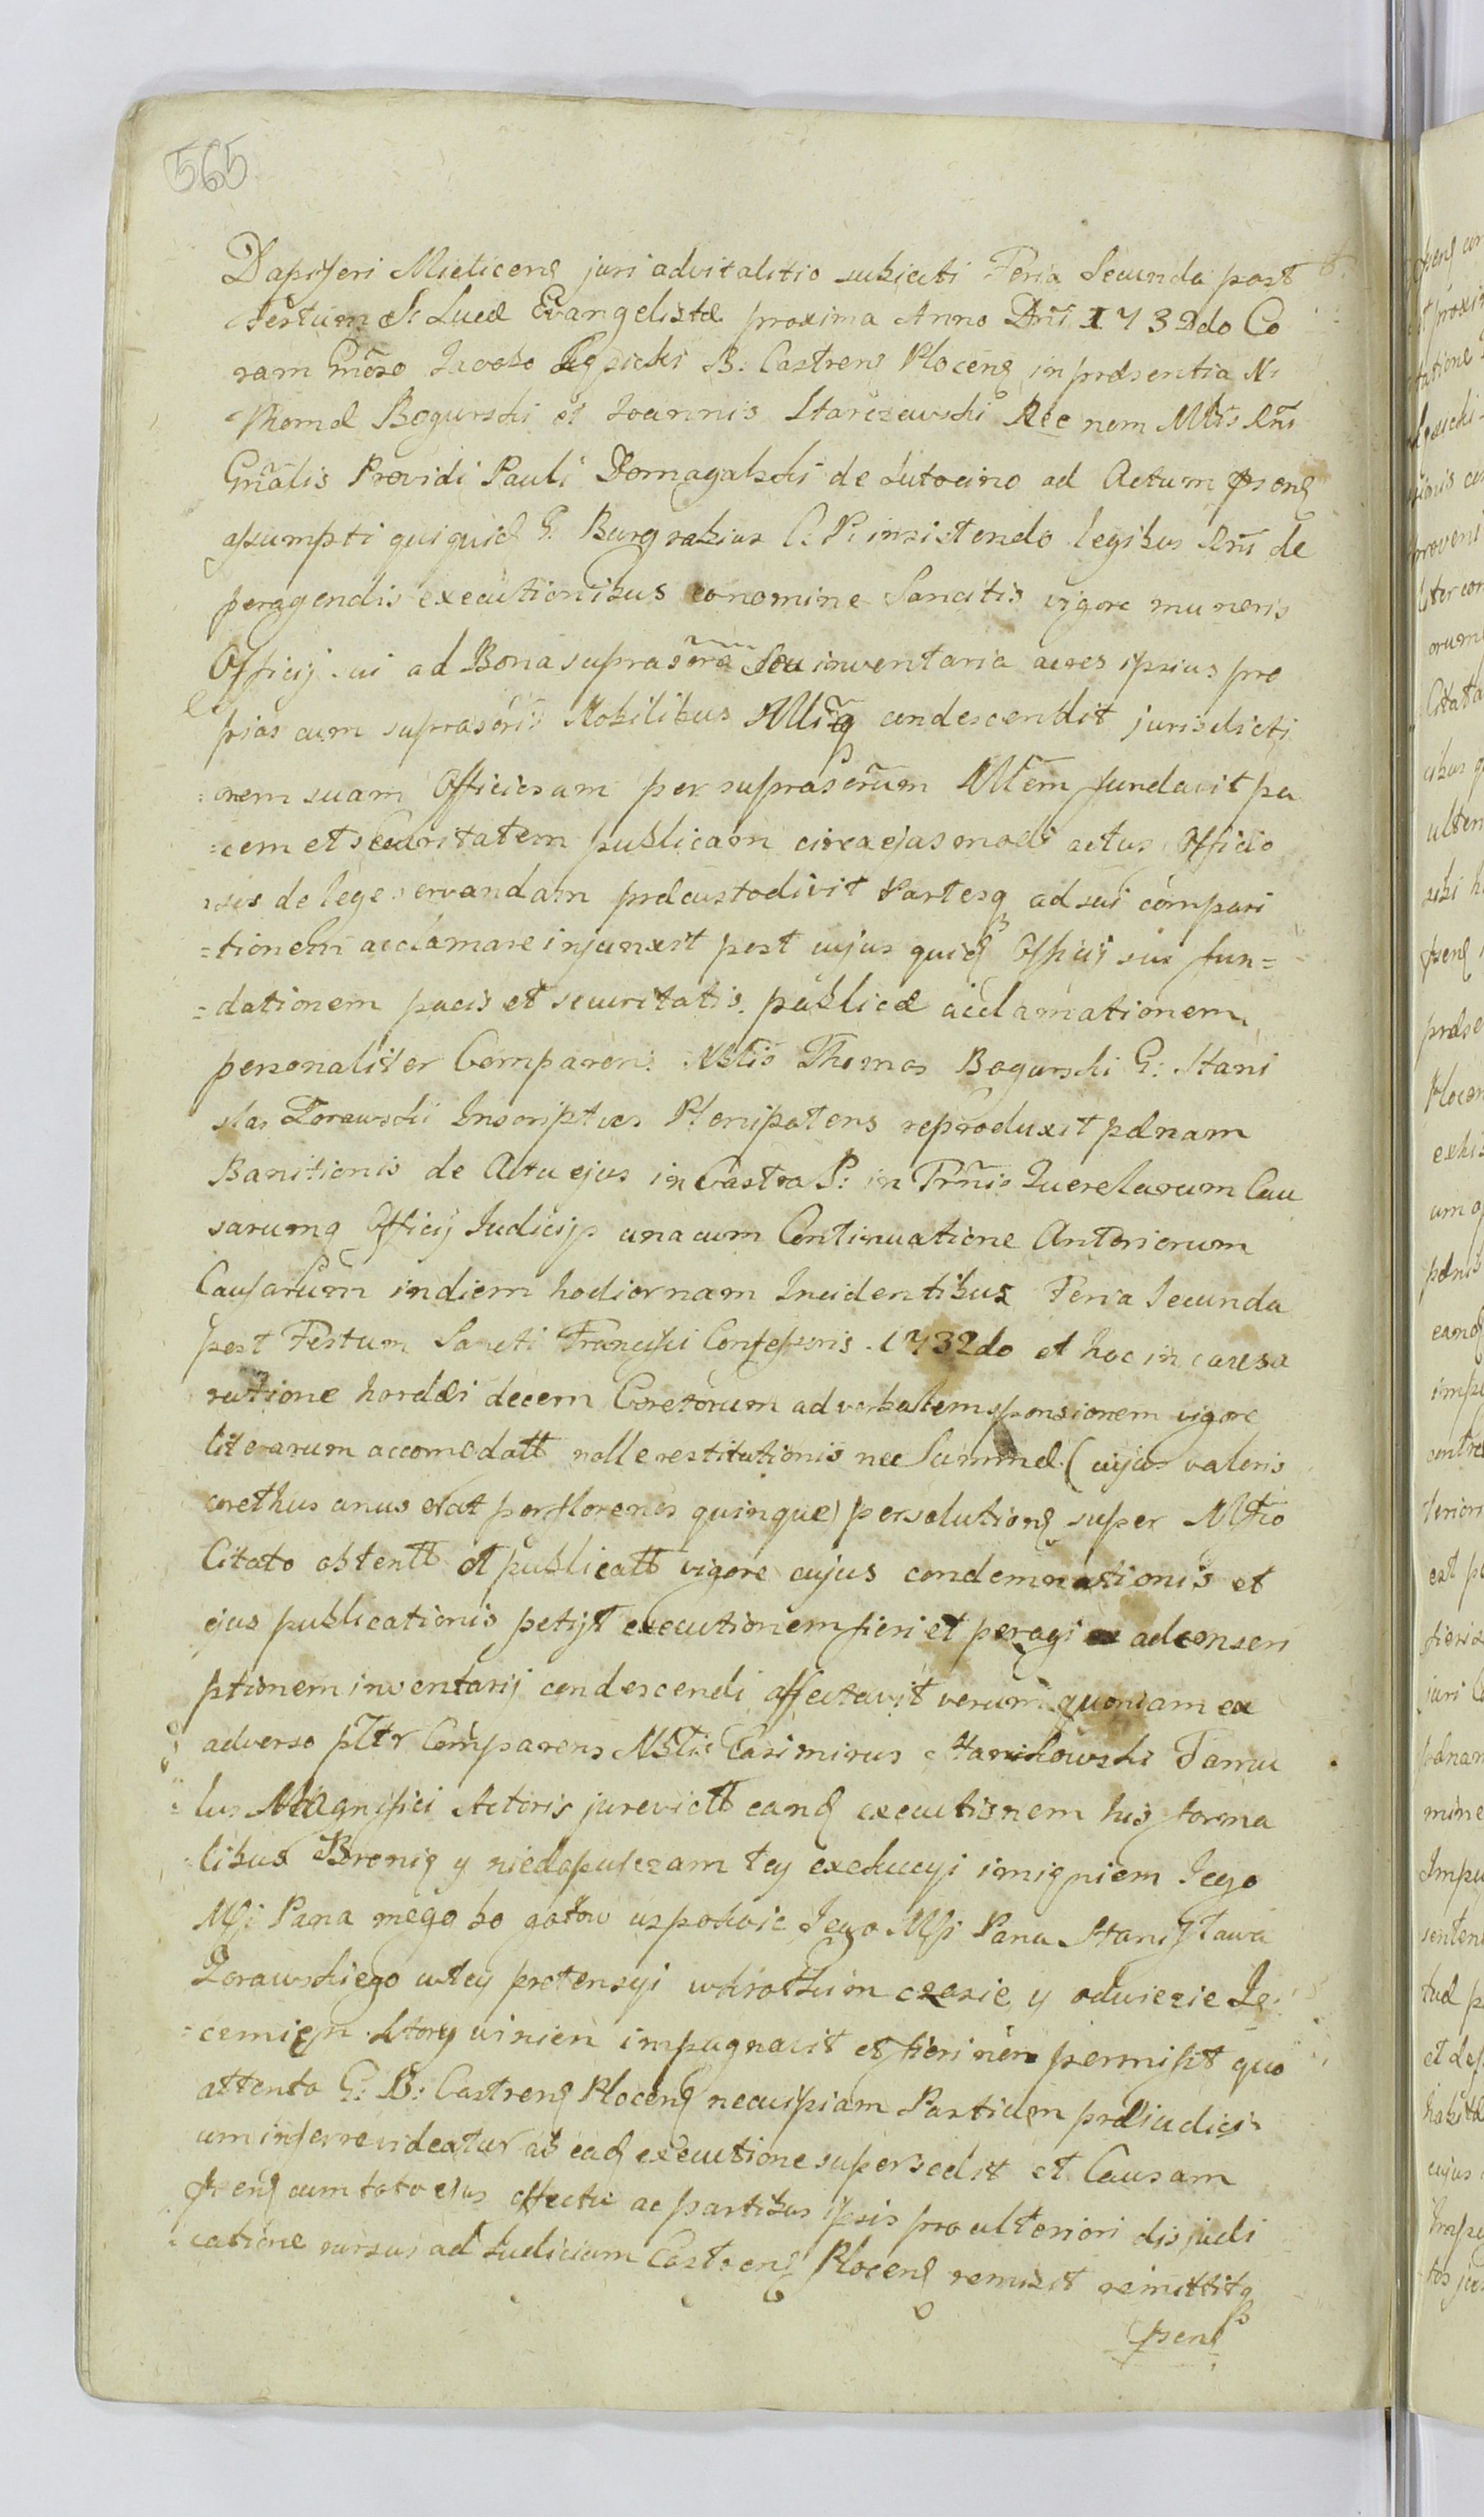 565
Dapiferi Mielicens juri advitalitio subjecti Feria Secunda post
Festum S. Lucæ Evangelistæ proxima Anno Dni 1732do Co
ram Gnoso Jacobo Lepicki B: Castrens Plocens in præsentia N:
Thomæ Bogurski et Joannis Starczewski nec non Mlis Rni
Gnalis Providi Pauli Domagalski de Lutocino ad Actum psens
assumpti qui quid G: Burgrabius C: P: insistendo legibus Rni de
peragendis executionibus eo nomine Sancitis vigore muneris
Officij sui ad Bona suprascra seu inventaria ac res ipsius pro
prias cum suprascris Nobilibus Mliq condescendit jurisdicti
=onem suam Officiosam per suprascrum Mlem fundavit pa
=cem et securitatem publicam circa ejusmodi actus Officio
=sos de lege servandam præcustodivit Partesq ad sui compari
=tionem acclamare injunxit post cujus quid Officij sui fun=
=dationem pacis et securitatis publicæ acclamationem
personaliter Comparens Nblis Thomas Bogurski G: Stani
slai Zorawski Inscriptus Plenipotens reproduxit pænam
Banitionis de Actu ejus in Castro P: in Trnis Querelarum Cau
sarumq Officij Judicijs una cum Continuatione Anteriorum
Causarum in diem hodiernam Incidentibus Feria Secunda
post Festum Sancti Francisci Confessoris 1732do et hoc in causa
ratione hordei decem Coretorum ad verbalem sponsionem vigore
literarum accomodatt non restitutionis nec Summæ (cujus valoris
corethus unus erat per florenos quinque) persolutions super Nbtio
Citato obtentt et publicatt vigore cujus condemnationis et
ejus publicationis petijt executionem fieri et peragi ad conscri
ptionem inventarij condescendi affectavit verum quoniam ex
adverso pltr Comparens Nblis Casimirus Stanikowski Famu
lus Magnifici Actoris jurevictt eand executionem his forma
=libus Bronię y niedopuszczam tey exekucyi imięniem Jego
Msi Pana mego bo gotow uspokoic Jego Msi Pana Stanisława
Zorawskiego w tey pretensyi w krotkim czasie y odwiezie Ję
=cemięn ktory winien impugnavit et fieri non permisit quo
attento G: B: Castrens Plocens ne cuipiam Partium præjudici
um inferre videatur ab ead executione supersedit et Causam
psens cum toto ejus effectu ac partibus ipsis pro ulteriori disjudi
=catione rursus ad Judicium Castrens Plocens remisit remittitq
psens